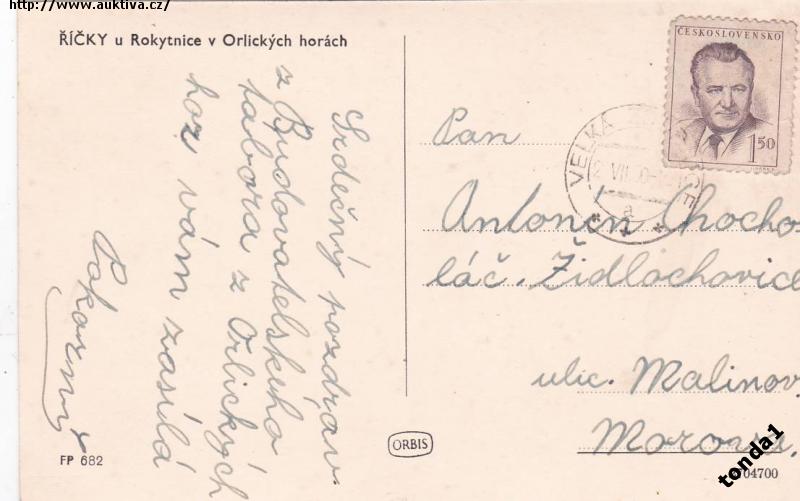 http://www.auktiva.cz/
ŘÍČKY u Rokytnice v Orlických horách
Srdečný pozdrav
z Budovatelského
tábora z Orlických
hor vám zasílá
Pokorný
FP 682
ORBIS
ČESKOSLOVENSKO
1.50
VELKÁ
VII
a
Pan
Antonín Chocho
láč. Židlochovice
ulic. Malinov
Morav
04700
tonda1